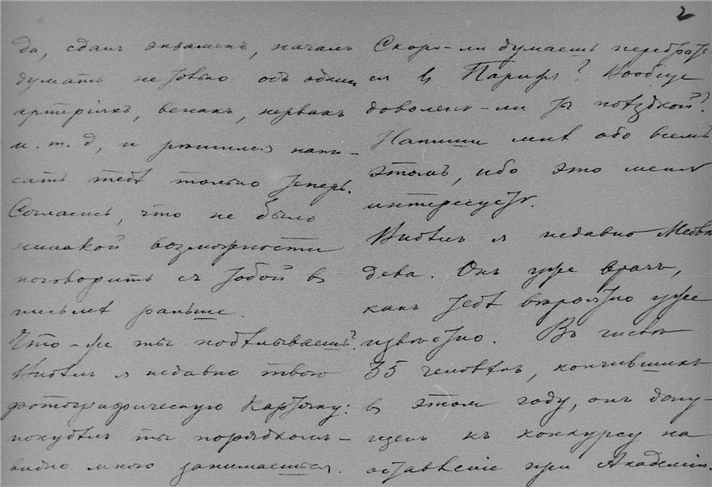 2
да, сдалъ экзаменъ, началъ
думать не только объ однихъ
артерiяхъ, венахъ, нервахъ
и. т. д, и рѣшился напи-
сать тебѣ только теперь.
Согласись, что не было
никакой возможности
поговорить съ тобой въ
письмѣ раньше.
Что-же ты подѣлываешь?
Видѣлъ я недавно твою
фотографическую карточку:
похудѣлъ ты порядкомъ-
видно много занимаешься.
Скоро-ли думаешь перебрать
ся въ Парижъ? Вообще
доволенъ-ли ты поѣздкой?
Напиши мнѣ обо всемъ
этомъ, ибо это меня
интересуетъ.
Видѣлъ я недавно Медвѣ
дева. Онъ уже врачъ,
какъ тебѣ вѣроятно уже
извѣстно. Въ числѣ
35 человѣкъ, кончившихъ
въ этомъ году, онъ допу-
щенъ къ конкурсу на
оставленiе при Академiи.